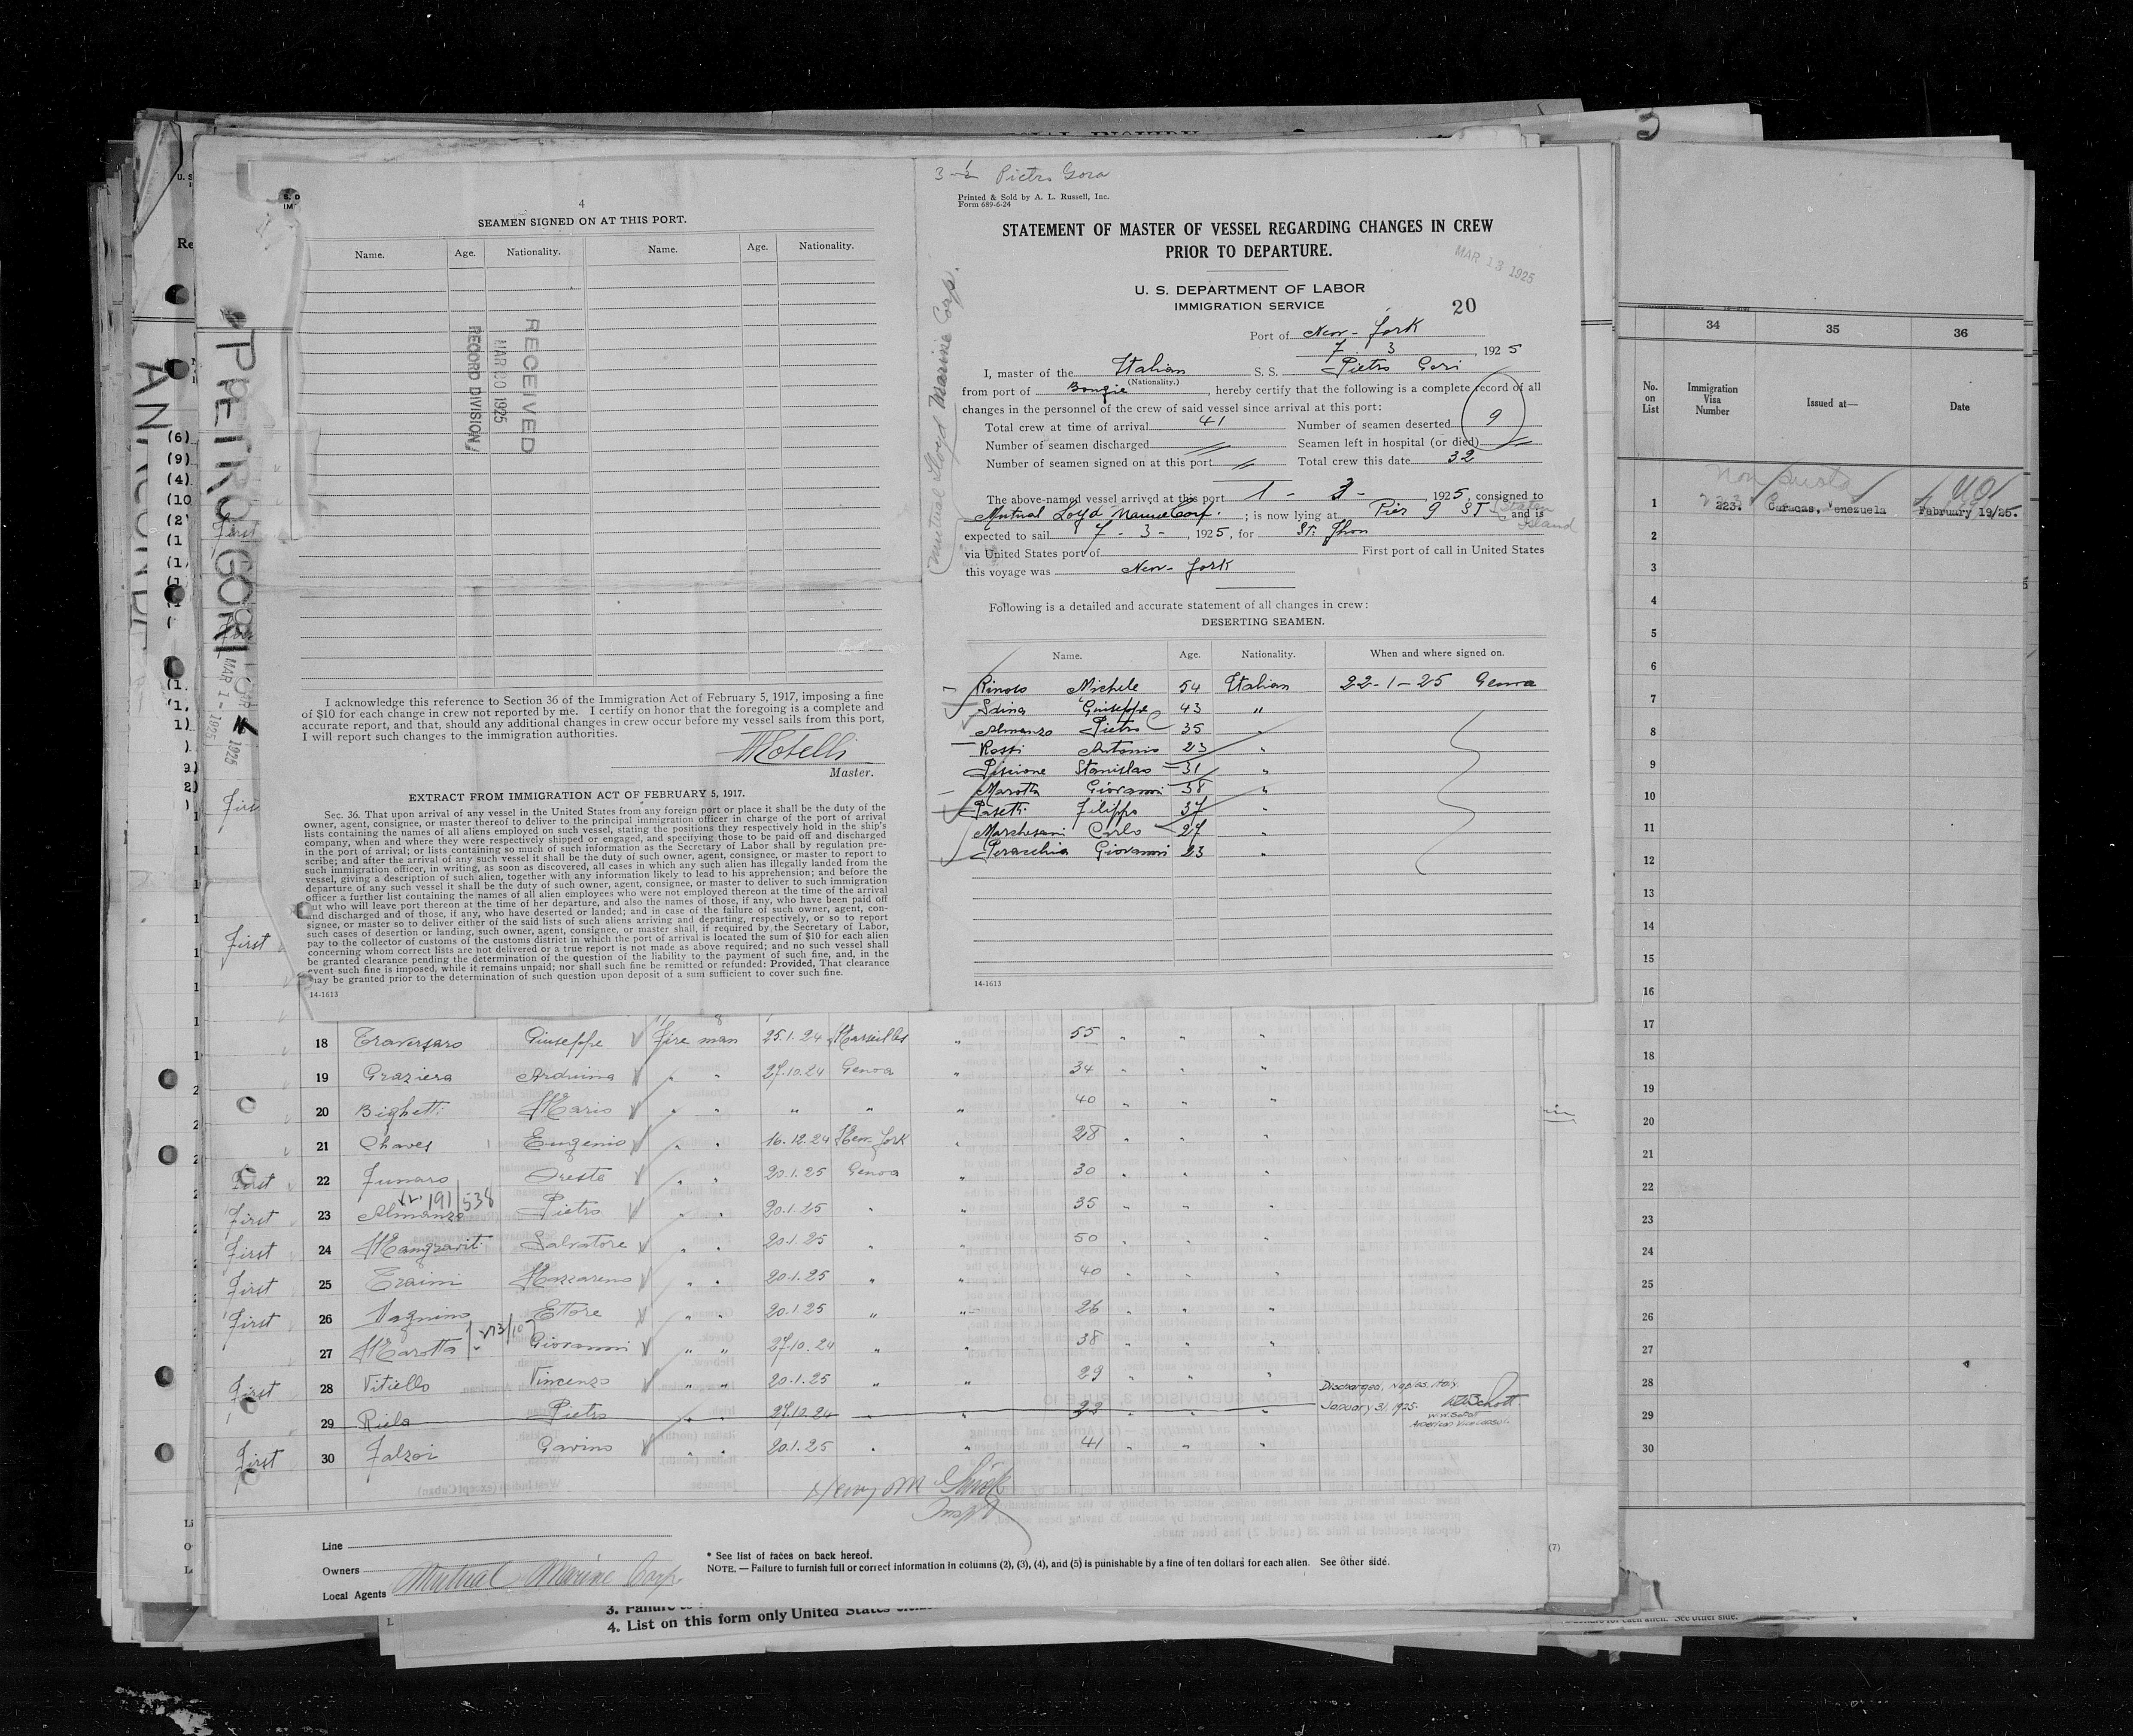 4
SEAMEN SIGNED ON AT THIS PORT.
Name. Age. Nationality. Name. Age. Nationality.
RECEIVED
1925
RECORD DIVISION
I acknowledge this reference to Section 36 of the Immigration Act of February 5, 1917, imposing a fine
of $10 for each change in crew not reported by me. I certify on honor that the foregoing is a complete and
accurate report, and that, should any additional changes in crew occur before my vessel sails from this port,
I will report such changes to the immigration authorities.
Master.
EXTRACT FROM IMMIGRATION ACT OF FEBRUARY 5, 1917.
Sec. 36. That upon arrival of any vessel in the United States from any foreign port or place it shall be the duty of the
owner, agent, consignee, or master thereof to deliver to the principal immigration officer in charge of the port of arrival
lists containing the names of all aliens employed on such vessel, stating the positions they respectively hold in the ship's
company, when and where they were respectively shipped or engaged, and specifying those to be paid off and discharged
in the port of arrival; or lists containing so much of such information as the Secretary of Labor shall by regulation pre-
scribe; and after the arrival of any such vessel it shall be the duty of such owner, agent, consignee, or master to report to
such immigration officer, in writing, as soon as discovered, all cases in which any such alien has illegally landed from the
vessel, giving a description of such alien, together with any information likely to lead to his apprehension; and before the
departure of any such vessel it shall be the duty of such owner, agent, consignee, or master to deliver to such immigration
officer a further list containing the names of all alien employees who were not employed thereon at the time of the arrival
but who will leave port thereon at the time of her departure, and also the names of those, if any, who have been paid off
and discharged and of those, if any, who have deserted or landed; and in case of the failure of such owner, agent, con-
signee, or master so to deliver either of the said lists of such aliens arriving and departing, respectively, or so to report
such cases of desertion or landing, such owner, agent, consignee, or master shall, if required by the Secretary of Labor,
pay to the collector of customs of the customs district in which the port of arrival is located the sum of $10 for each alien
concerning whom correct lists are not delivered or a true report is not made as above required; and no such vessel shall
be granted clearance pending the determination of the question of the liability to the payment of such fine, and, in the
event such fine is imposed, while it remains unpaid; nor shall such fine be remitted or refunded: Provided, That clearance
may be granted prior to the determination of such question upon deposit of a sum sufficient to cover such fine.
14-1613
Pietro Gora
Printed & Sold by A. L. Russell, Inc.
Form 689-6-24
STATEMENT OF MASTER OF VESSEL REGARDING CHANGES IN CREW
PRIOR TO DEPARTURE.
MAR 13 1925
U. S. DEPARTMENT OF LABOR
IMMIGRATION SERVICE
20
Port of New-York
7. 3, 1925
I, master of the Italian S. S. Pietro Gori
(Nationality.)
from port of Bougie, hereby certify that the following is a complete record of all
changes in the personnel of the crew of said vessel since arrival at this port:
Total crew at time of arrival 41 Number of seamen deserted 9
Number of seamen discharged // Seamen left in hospital (or died) //
Number of seamen signed on at this port // Total crew this date 32
The above-named vessel arrived at this port 1 - 3 -, 1925, consigned to
Mutual Loyd Marine Corp.; is now lying at Pier 9 ST (Staten Island) and is
expected to sail 7 - 3 -, 1925, for St. Jhon
via United States port of First port of call in United States
this voyage was New-York
(Mutual Lloyd Marine Corp.
Following is a detailed and accurate statement of all changes in crew:
DESERTING SEAMEN.
Name. Age. Nationality. When and where signed on.
Michele 54 Italian 22-1-25 Genoa
Giuseppe 43 "
Almanzo Pietro 35 "
Rossi Antonio 23 "
Piscione Stanislao 31 "
Marotta Giovanni 38 "
Pasetti Filippo 37 "
Marchesani Carlo 27 "
Peracchia Giovanni 23 "
14-1613
PIETRO GORI
MAR 1 - 1925
18 Traversaro Giuseppe Fire man 25.1.24 Marseilles " 55 " " "
19 Graziera Arduina " " 27.10.24 Genoa " 34 " " "
20 Bighetti Mario " " " " " 40 " " "
21 Chaves Eugenio " " 16.12.24 New-York " 28 " " "
First 22 Fumaro Oreste " " 20.1.25 Genoa " 30 " " "
191/538
First 23 Almanzo Pietro " " 20.1.25 " " 35 " " "
First 24 Mangraviti Salvatore " " 20.1.25 " " 50 " " "
First 25 Nazzareno " " 20.1.25 " " 40 " " "
First 26 Vagnino Ettore " " 20.1.25 " " 26 " " "
27 Marotta Giovanni " " 27.10.24 " " 38 " " "
First 28 Vitiello Vincenzo " " 20.1.25 " " 29 " " "
29 Riela Pietro " " 27.10.24 " " 22 " " "
Discharged, Naples, Italy.
January 31, 1925.
American Vice Consul.
First 30 Falzoi Gavino " " 20.1.25 " " 41 " " "
Line
Owners
Local Agents Mutual Marine Corp
* See list of races on back hereof.
NOTE. — Failure to furnish full or correct information in columns (2), (3), (4), and (5) is punishable by a fine of ten dollars for each alien. See other side.
(7)
4. List on this form only United States
34 35 36
No. on List Immigration Visa Number Issued at— Date
Non quota
1 223. Caracas, Venezuela February 19/25.
2
3
4
5
6
7
8
9
10
11
12
13
14
15
16
17
18
19
20
21
22
23
24
25
26
27
28
29
30